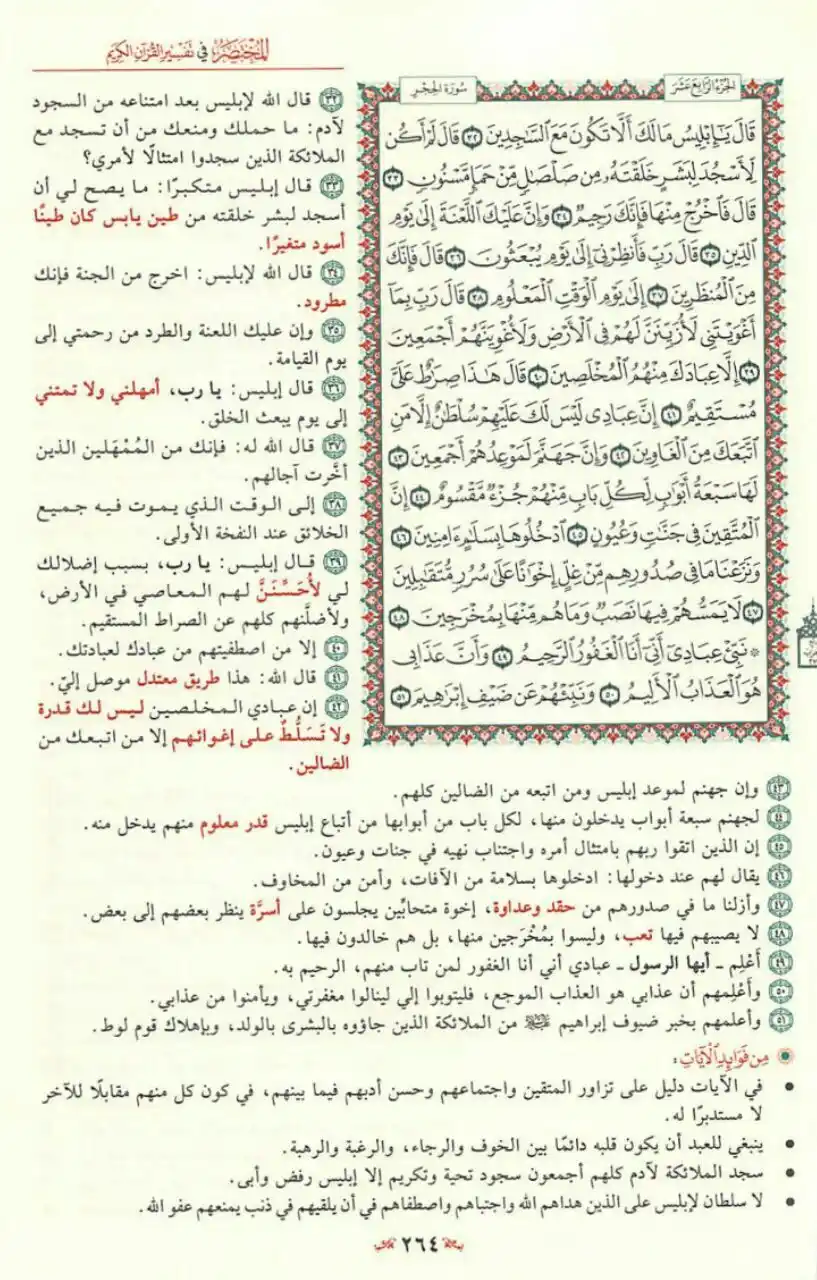 المختصر في تفسير القرآن الكريم
الجزء الرابع عشر
سورة الحجر
قَالَ يَٰٓإِبۡلِيسُ مَالَكَ أَلَّا تَكُونَ مَعَ ٱلسَّٰجِدِينَ ٣٢ قَالَ لَمۡ أَكُن
لِّأَسۡجُدَ لِبَشَرٍ خَلَقۡتَهُۥ مِن صَلۡصَٰلٖ مِّنۡ حَمَإٖ مَّسۡنُونٖ ٣٣
قَالَ فَٱخۡرُجۡ مِنۡهَا فَإِنَّكَ رَجِيمٞ ٣٤ وَإِنَّ عَلَيۡكَ ٱللَّعۡنَةَ إِلَىٰ يَوۡمِ
ٱلدِّينِ ٣٥ قَالَ رَبِّ فَأَنظِرۡنِيٓ إِلَىٰ يَوۡمِ يُبۡعَثُونَ ٣٦ قَالَ فَإِنَّكَ
مِنَ ٱلۡمُنظَرِينَ ٣٧ إِلَىٰ يَوۡمِ ٱلۡوَقۡتِ ٱلۡمَعۡلُومِ ٣٨ قَالَ رَبِّ بِمَآ
أَغۡوَيۡتَنِي لَأُزَيِّنَنَّ لَهُمۡ فِي ٱلۡأَرۡضِ وَلَأُغۡوِيَنَّهُمۡ أَجۡمَعِينَ
٣٩ إِلَّا عِبَادَكَ مِنۡهُمُ ٱلۡمُخۡلَصِينَ ٤٠ قَالَ هَٰذَا صِرَٰطٌ عَلَيَّ
مُسۡتَقِيمٌ ٤١ إِنَّ عِبَادِي لَيۡسَ لَكَ عَلَيۡهِمۡ سُلۡطَٰنٌ إِلَّا مَنِ
ٱتَّبَعَكَ مِنَ ٱلۡغَاوِينَ ٤٢ وَإِنَّ جَهَنَّمَ لَمَوۡعِدُهُمۡ أَجۡمَعِينَ ٤٣
لَهَا سَبۡعَةُ أَبۡوَٰبٖ لِّكُلِّ بَابٖ مِّنۡهُمۡ جُزۡءٞ مَّقۡسُومٌ ٤٤ إِنَّ
ٱلۡمُتَّقِينَ فِي جَنَّٰتٖ وَعُيُونٍ ٤٥ ٱدۡخُلُوهَا بِسَلَٰمٍ ءَامِنِينَ ٤٦
وَنَزَعۡنَا مَا فِي صُدُورِهِم مِّنۡ غِلٍّ إِخۡوَٰنًا عَلَىٰ سُرُرٖ مُّتَقَٰبِلِينَ
٤٧ لَا يَمَسُّهُمۡ فِيهَا نَصَبٞ وَمَا هُم مِّنۡهَا بِمُخۡرَجِينَ ٤٨
۞ نَبِّئۡ عِبَادِيٓ أَنِّيٓ أَنَا ٱلۡغَفُورُ ٱلرَّحِيمُ ٤٩ وَأَنَّ عَذَابِي
هُوَ ٱلۡعَذَابُ ٱلۡأَلِيمُ ٥٠ وَنَبِّئۡهُمۡ عَن ضَيۡفِ إِبۡرَٰهِيمَ ٥١
٣٢ قال الله لإبليس بعد امتناعه من السجود
لآدم: ما حملك ومنعك من أن تسجد مع
الملائكة الذين سجدوا امتثالًا لأمري؟
٣٣ قال إبليس متكبرًا: ما يصح لي أن
أسجد لبشر خلقته من طين يابس كان طينًا
أسود متغيرًا.
٣٤ قال الله لإبليس: اخرج من الجنة فإنك
مطرود.
٣٥ وإن عليك اللعنة والطرد من رحمتي إلى
يوم القيامة.
٣٦ قال إبليس: يا رب، أمهلني ولا تمتني
إلى يوم يبعث الخلق.
٣٧ قال الله له: فإنك من المُمْهَلين الذين
أخَّرت آجالهم.
٣٨ إلى الوقت الذي يموت فيه جميع
الخلائق عند النفخة الأولى.
٣٩ قال إبليس: يا رب، بسبب إضلالك
لي لأُحَسِّنَنَّ لهم المعاصي في الأرض،
ولأضلَّنهم كلهم عن الصراط المستقيم.
٤٠ إلا من اصطفيتهم من عبادك لعبادتك.
٤١ قال الله: هذا طريق معتدل موصل إليّ.
٤٢ إن عبادي المخلصين ليس لك قدرة
ولا تَسَلُّطٌ على إغوائهم إلا من اتبعك من
الضالين.
٤٣ وإن جهنم لموعد إبليس ومن اتبعه من الضالين كلهم.
٤٤ لجهنم سبعة أبواب يدخلون منها، لكل باب من أبوابها من أتباع إبليس قدر معلوم منهم يدخل منه.
٤٥ إن الذين اتقوا ربهم بامتثال أمره واجتناب نهيه في جنات وعيون.
٤٦ يقال لهم عند دخولها: ادخلوها بسلامة من الآفات، وأمن من المخاوف.
٤٧ وأزلنا ما في صدورهم من حقد وعداوة، إخوة متحابِّين يجلسون على أسرَّة ينظر بعضهم إلى بعض.
٤٨ لا يصيبهم فيها تعب، وليسوا بمُخْرَجين منها، بل هم خالدون فيها.
٤٩ أَعْلِم - أيها الرسول - عبادي أني أنا الغفور لمن تاب منهم، الرحيم به.
٥٠ وأَعْلِمهم أن عذابي هو العذاب الموجع، فليتوبوا إلي لينالوا مغفرتي، ويأمنوا من عذابي.
٥١ وأعلمهم بخبر ضيوف إبراهيم ﷺ من الملائكة الذين جاؤوه بالبشرى بالولد، وبإهلاك قوم لوط.
من فوائد الآيات:
• في الآيات دليل على تزاور المتقين واجتماعهم وحسن أدبهم فيما بينهم، في كون كل منهم مقابلًا للآخر
لا مستدبرًا له.
• ينبغي للعبد أن يكون قلبه دائمًا بين الخوف والرجاء، والرغبة والرهبة.
• سجد الملائكة لآدم كلهم أجمعون سجود تحية وتكريم إلا إبليس رفض وأبى.
• لا سلطان لإبليس على الذين هداهم الله واجتباهم واصطفاهم في أن يلقيهم في ذنب يمنعهم عفو الله.
٢٦٤